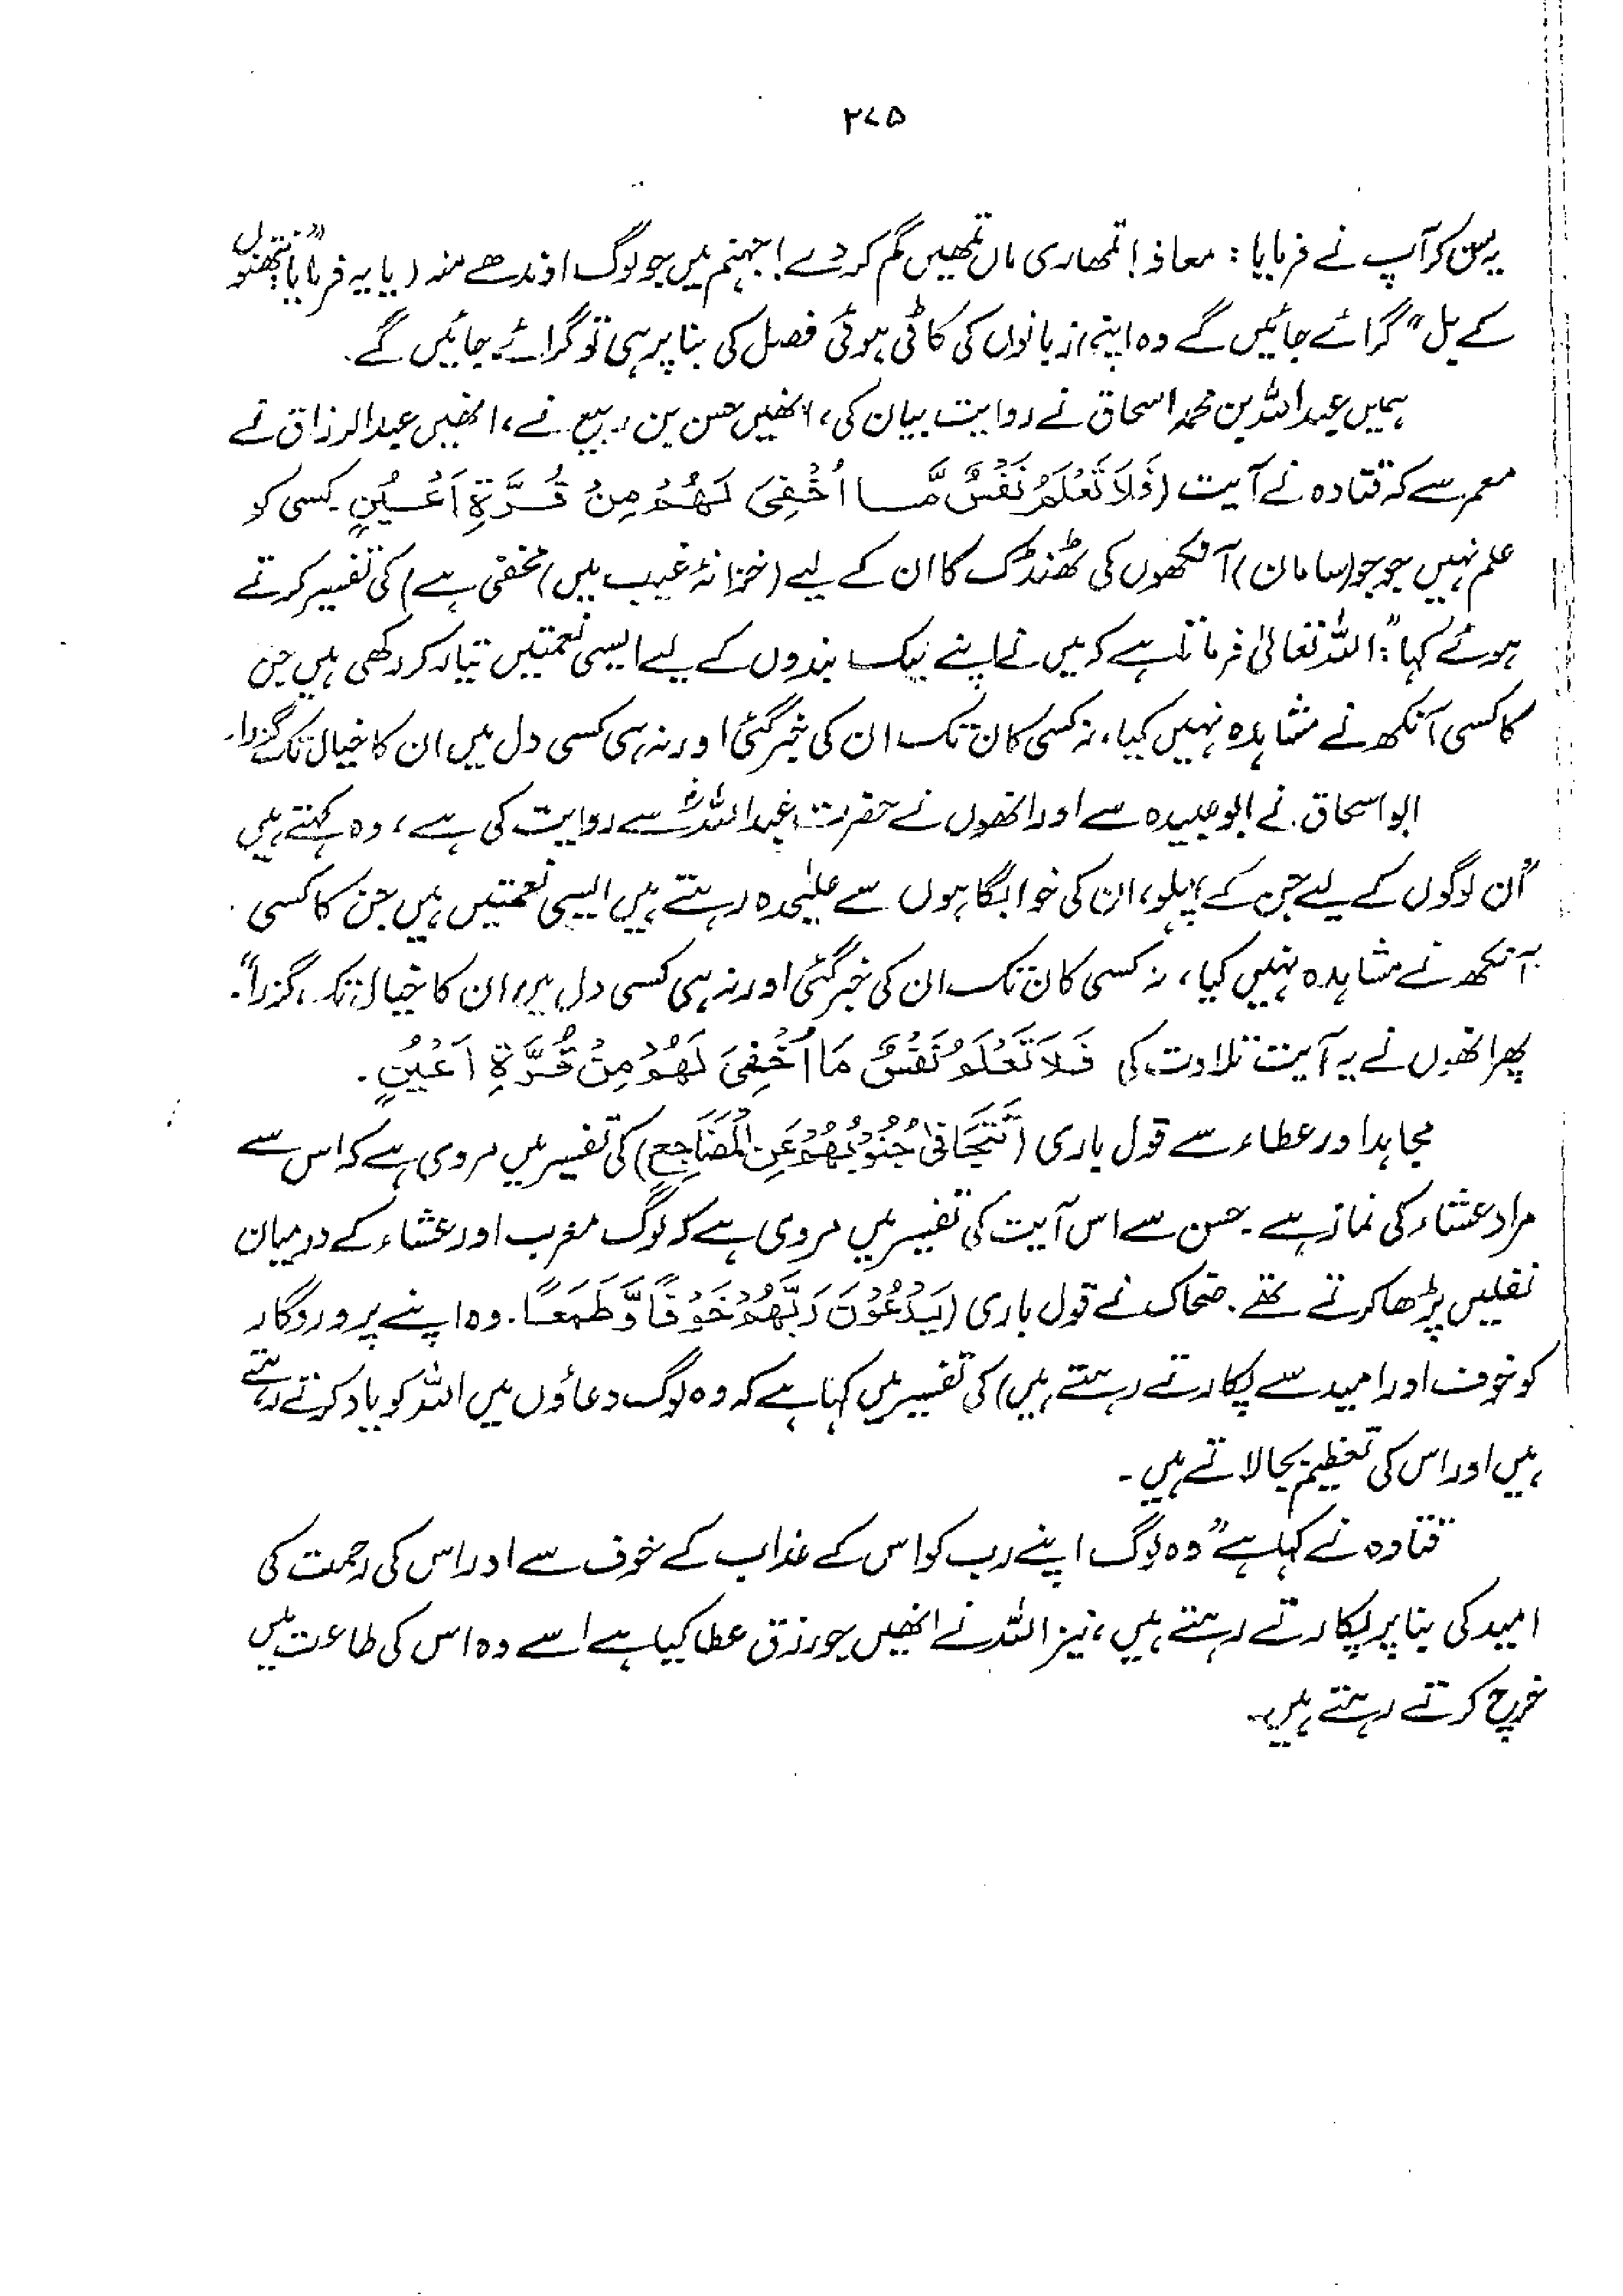 ۲۷۵
یہ سن کر آپ نے فرمایا: معاذ! تمھاری ماں تمھیں گم کر دے! جہنم میں جو لوگ اوندھے منہ (یا یہ فرمایا: "نتھنوں
کے بل" گرائے جائیں گے وہ اپنی زبانوں کی کاٹی ہوئی فصل کی بنا پر ہی تو گرائے جائیں گے۔
ہمیں عبداللہ بن محمد اسحاق نے روایت بیان کی، انھیں حسن بن ربیع نے، انھیں عبدالرزاق نے
معمر سے کہ قتادہ نے آیت (فَلَا تَعْلَمُ نَفْسٌ مَّا اُخْفِیَ لَهُمْ مِنْ قُرَّةِ اَعْیُنٍ۔ کسی کو
علم نہیں جو جو (سامان) آنکھوں کی ٹھنڈک کا ان کے لیے (خزانۂ غیب میں) مخفی ہے) کی تفسیر کرتے
ہوئے کہا: "اللہ تعالیٰ فرماتا ہے کہ میں نے اپنے نیک بندوں کے لیے ایسی نعمتیں تیار کر رکھی ہیں جن
کا کسی آنکھ نے مشاہدہ نہیں کیا، نہ کسی کان تک ان کی خبر گئی اور نہ ہی کسی دل میں ان کا خیال تک گزرا۔
ابو اسحاق نے ابو عبیدہ سے اور انھوں نے حضرت عبداللہؓ سے روایت کی ہے، وہ کہتے ہیں
"اُن لوگوں کے لیے جن کے پہلو، ان کی خوابگاہوں سے علیٰحدہ رہتے ہیں ایسی نعمتیں ہیں جن کا کسی
آنکھ نے مشاہدہ نہیں کیا، نہ کسی کان تک ان کی خبر گئی اور نہ ہی کسی دل میں ان کا خیال تک گزرا"۔
پھر انھوں نے یہ آیت تلاوت کی فَلَا تَعْلَمُ نَفْسٌ مَا اُخْفِیَ لَهُمْ مِنْ قُرَّةِ اَعْیُنٍ۔
مجاہد اور عطاء سے قول باری (تَتَجَافٰی جُنُوْبُهُمْ عَنِ الْمَضَاجِعِ) کی تفسیر میں مروی ہے کہ اس سے
مراد عشاء کی نماز ہے۔ حسن سے اس آیت کی تفسیر میں مروی ہے کہ لوگ مغرب اور عشاء کے درمیان
نفلیں پڑھا کرتے تھے۔ ضحاک نے قول باری (یَدْعُوْنَ رَبَّهُمْ خَوْفًا وَّطَمَعًا۔ وہ اپنے پروردگار
کو خوف اور امید سے پکارتے رہتے ہیں) کی تفسیر میں کہا ہے کہ وہ لوگ دعاؤں میں اللہ کو یاد کرتے رہتے
ہیں اور اس کی تعظیم بجا لاتے ہیں۔
قتادہ نے کہا ہے "وہ لوگ اپنے رب کو اس کے عذاب کے خوف سے اور اس کی رحمت کی
امید کی بنا پر پکارتے رہتے ہیں، نیز اللہ نے انھیں جو رزق عطا کیا ہے اسے وہ اس کی طاعت میں
خرچ کرتے رہتے ہیں۔